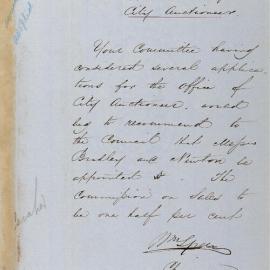 City Auctioneer
Your Committee having
considered several applica
tions for the Office of
City Auctioneer, would
beg to recommend to
the Council that Messrs
Bradley and Newton be
appointed. The
Commission on Sales to
be one half per cent
Wm Speer